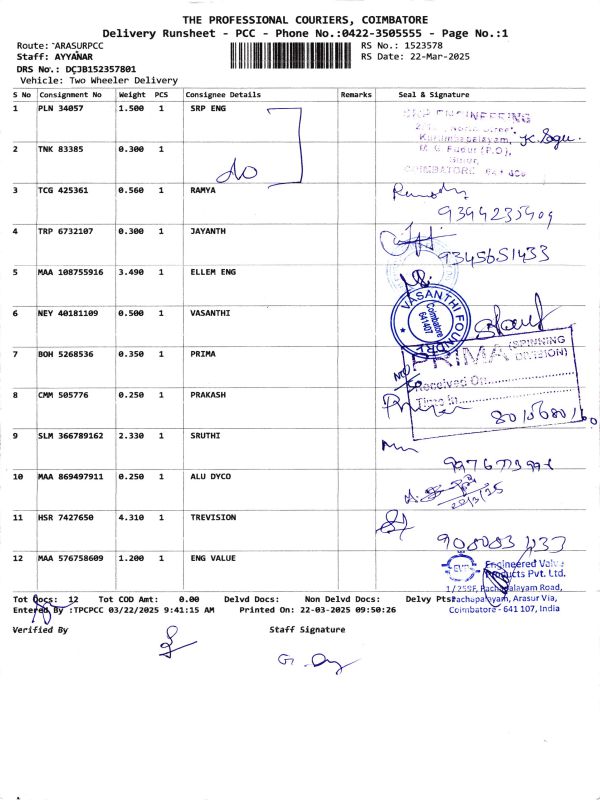 THE PROFESSIONAL COURIERS, COIMBATORE
Delivery Runsheet - PCC - Phone No.:0422-3505555 - Page No.:1
Route: ARASURPCC
RS No.: 1523578
Staff: AYYANAR
RS Date: 22-Mar-2025
DRS No.: DCJB152357801
Vehicle: Two Wheeler Delivery
S No Consignment No Weight PCS Consignee Details Remarks Seal & Signature
1 PLN 34057 1.500 1 SRP ENG
2 TNK 83385 0.300 1
do
M. G. Pudur (P.O),
COIMBATORE
3 TCG 425361 0.560 1 RAMYA
4 TRP 6732107 0.300 1 JAYANTH
9345651433
5 MAA 108755916 3.490 1 ELLEM ENG
6 NEY 40181109 0.500 1 VASANTHI
VASANTHI FOUNDRY
Coimbatore
641407
7 BOH 5268536 0.350 1 PRIMA
PRIMA (SPINNING
DIVISION)
Received On
Time In
8 CMM 505776 0.250 1 PRAKASH
9 SLM 366789162 2.330 1 SRUTHI
10 MAA 869497911 0.250 1 ALU DYCO
11 HSR 7427650 4.310 1 TREVISION
12 MAA 576758609 1.200 1 ENG VALUE
EVP
Engineered Valve
Products Pvt. Ltd.
1/259F, Pachapalayam Road,
Pachapalayam, Arasur Via,
Coimbatore - 641 107, India
Tot Docs: 12 Tot COD Amt: 0.00 Delvd Docs: Non Delvd Docs: Delvy Pts:
Entered By :TPCPCC 03/22/2025 9:41:15 AM Printed On: 22-03-2025 09:50:26
Verified By Staff Signature